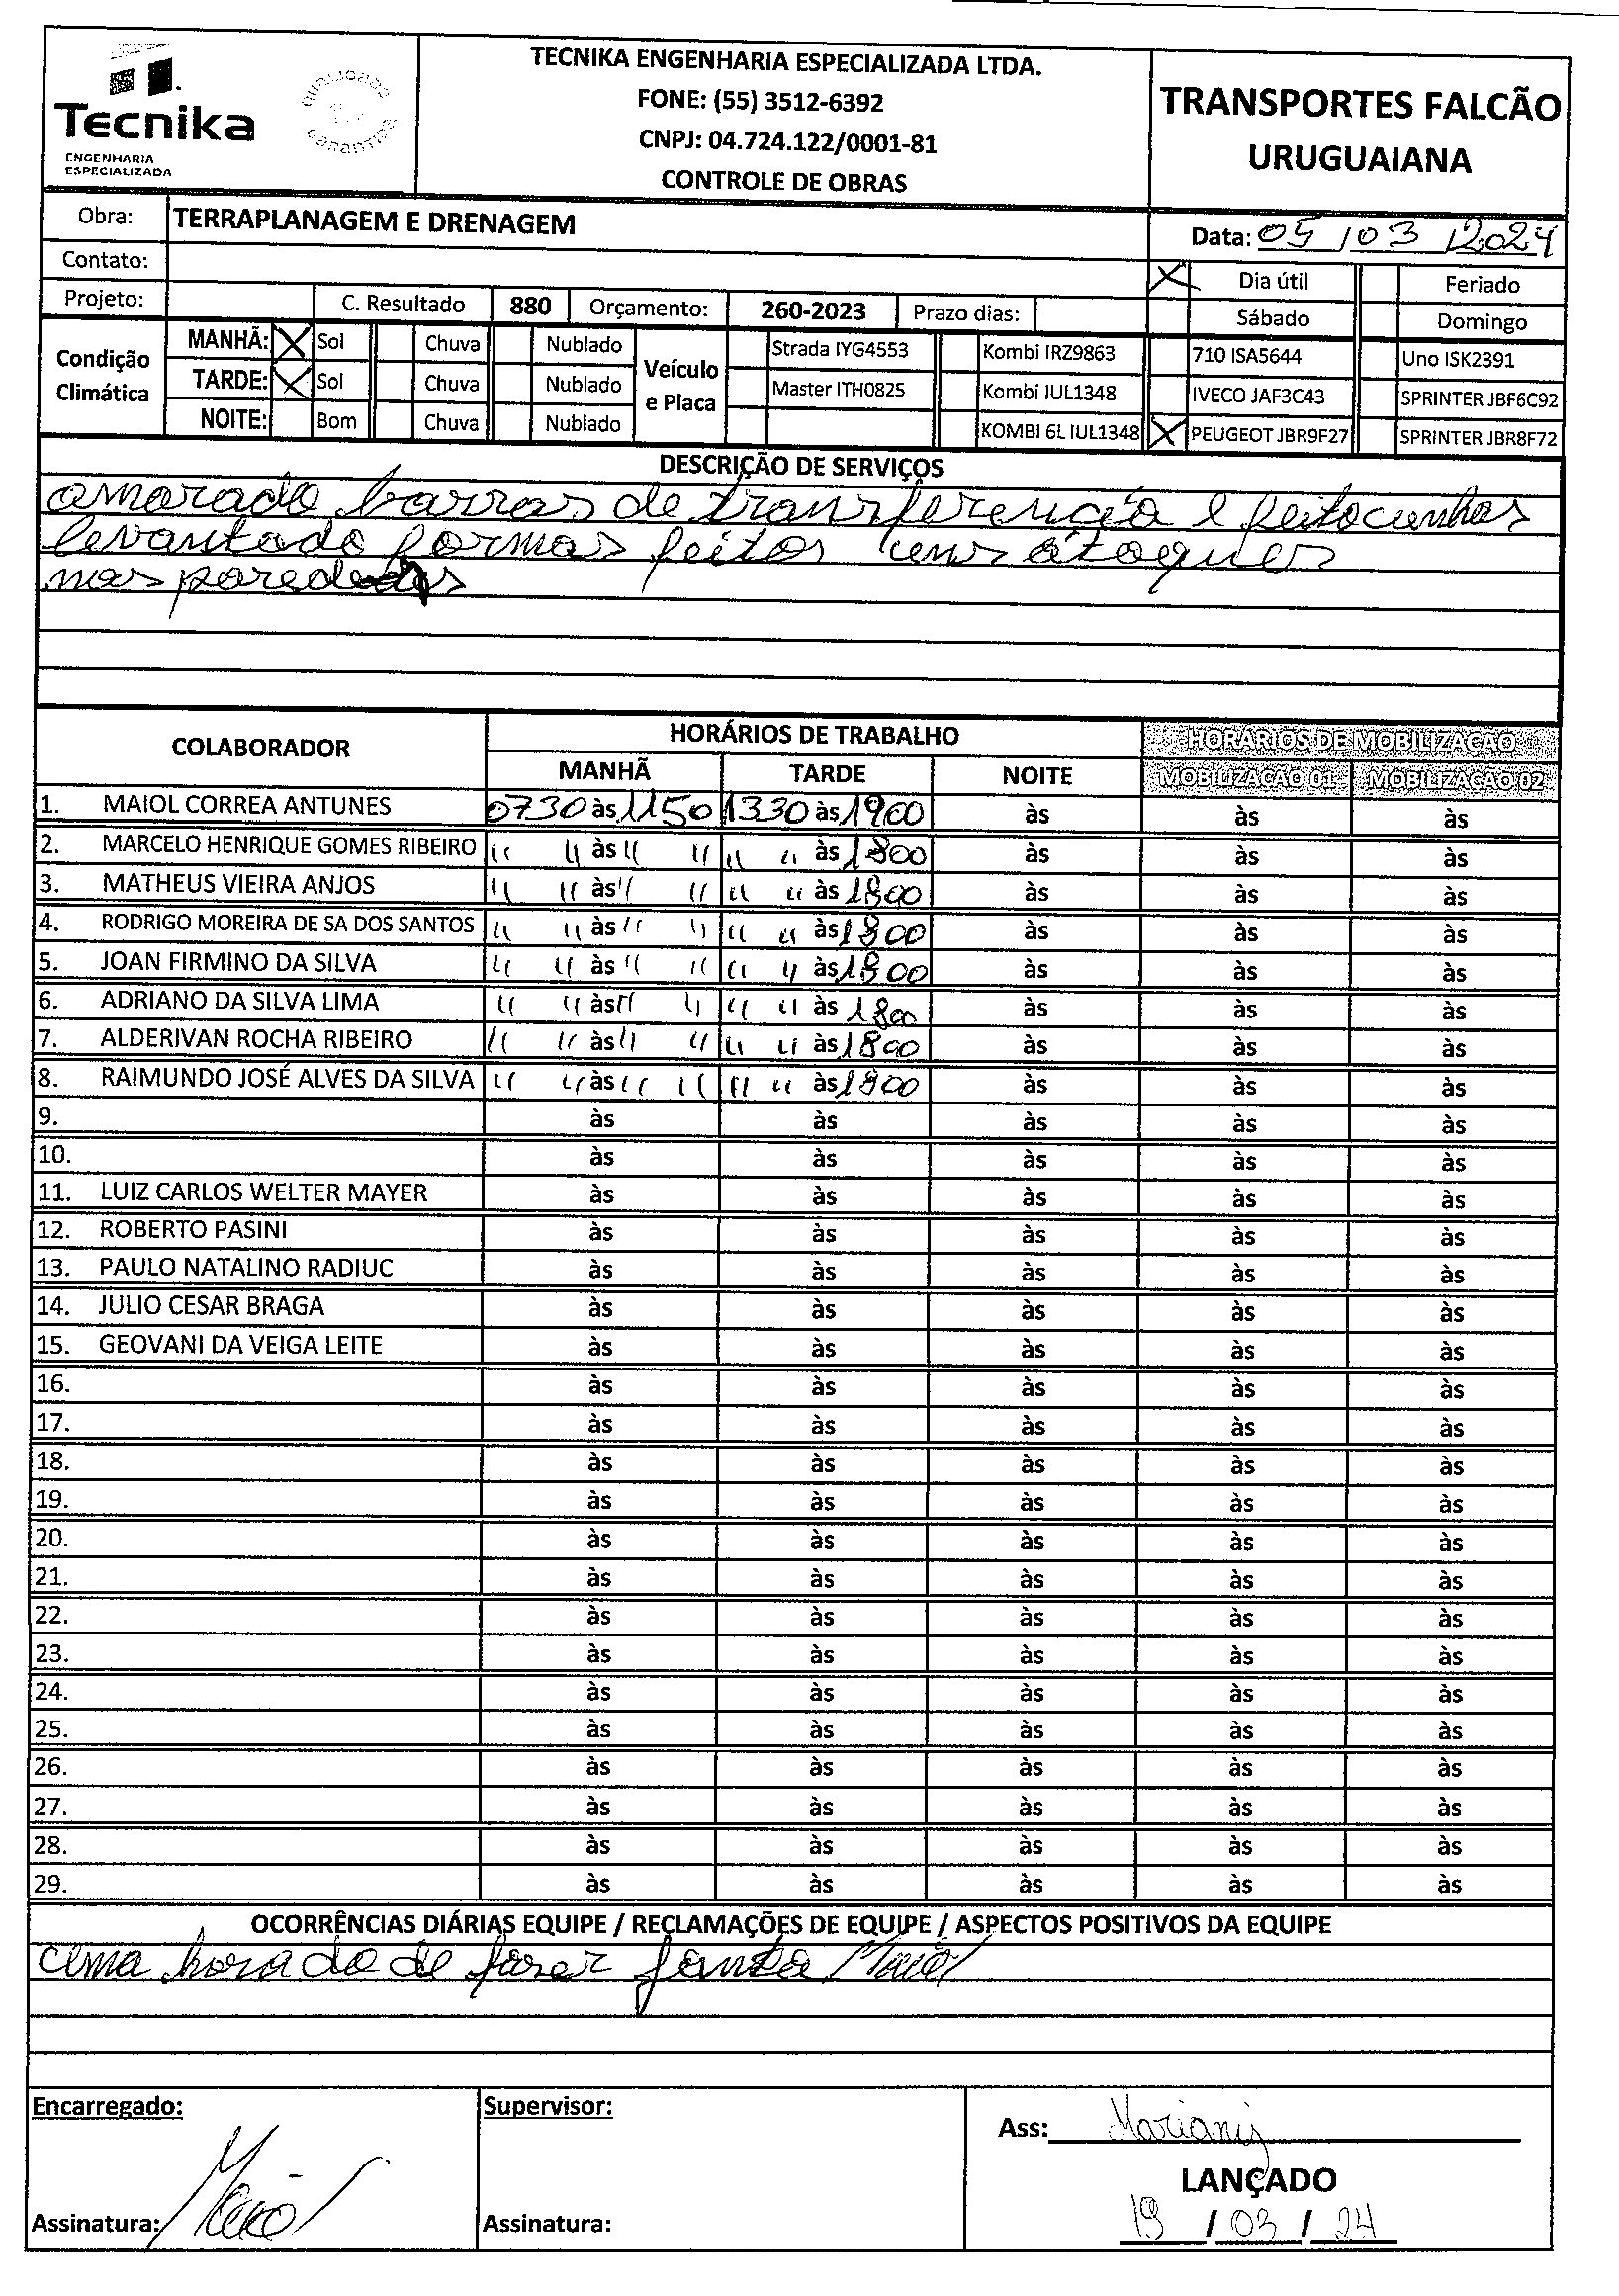 Tecnika
ENGENHARIA
ESPECIALIZADA
TECNIKA ENGENHARIA ESPECIALIZADA LTDA.
FONE: (55) 3512-6392
CNPJ: 04.724.122/0001-81
CONTROLE DE OBRAS
TRANSPORTES FALCÃO
URUGUAIANA
Obra: TERRAPLANAGEM E DRENAGEM
Data: 05/03/2024
Contato:
X Dia útil Feriado
Projeto: C. Resultado 880 Orçamento: 260-2023 Prazo dias:
Sábado Domingo
Condição Climática
MANHÃ: X Sol Chuva Nublado
TARDE: X Sol Chuva Nublado
NOITE: Bom Chuva Nublado
Veículo e Placa
Strada IYG4553 Kombi IRZ9863 710 ISA5644 Uno ISK2391
Master ITH0825 Kombi IUL1348 IVECO JAF3C43 SPRINTER JBF6C92
KOMBI 6L IUL1348 X PEUGEOT JBR9F27 SPRINTER JBR8F72
DESCRIÇÃO DE SERVIÇOS
amarado barras de transferencia e feito cunhas
levantado formas feitos uns atoques
nas paredes
COLABORADOR HORÁRIOS DE TRABALHO HORÁRIOS DE MOBILIZAÇÃO
MANHÃ TARDE NOITE MOBILIZAÇÃO 01 MOBILIZAÇÃO 02
1. MAIOL CORREA ANTUNES 0730 às 1150 1330 às 1900 às às às
2. MARCELO HENRIQUE GOMES RIBEIRO " " às " " " " às 1800 às às às
3. MATHEUS VIEIRA ANJOS " " às " " " " às 1800 às às às
4. RODRIGO MOREIRA DE SA DOS SANTOS " " às " " " " às 1800 às às às
5. JOAN FIRMINO DA SILVA " " às " " " " às 1800 às às às
6. ADRIANO DA SILVA LIMA " " às " " " " às 1800 às às às
7. ALDERIVAN ROCHA RIBEIRO " " às " " " " às 1800 às às às
8. RAIMUNDO JOSÉ ALVES DA SILVA " " às " " " " às 1800 às às às
9. às às às às às
10. às às às às às
11. LUIZ CARLOS WELTER MAYER às às às às às
12. ROBERTO PASINI às às às às às
13. PAULO NATALINO RADIUC às às às às às
14. JULIO CESAR BRAGA às às às às às
15. GEOVANI DA VEIGA LEITE às às às às às
16. às às às às às
17. às às às às às
18. às às às às às
19. às às às às às
20. às às às às às
21. às às às às às
22. às às às às às
23. às às às às às
24. às às às às às
25. às às às às às
26. às às às às às
27. às às às às às
28. às às às às às
29. às às às às às
OCORRÊNCIAS DIÁRIAS EQUIPE / RECLAMAÇÕES DE EQUIPE / ASPECTOS POSITIVOS DA EQUIPE
uma hora do de fazer janta Maiol
Encarregado:
Supervisor:
Ass: Mariany
LANÇADO
Assinatura: Maiol
Assinatura:
19/03/24